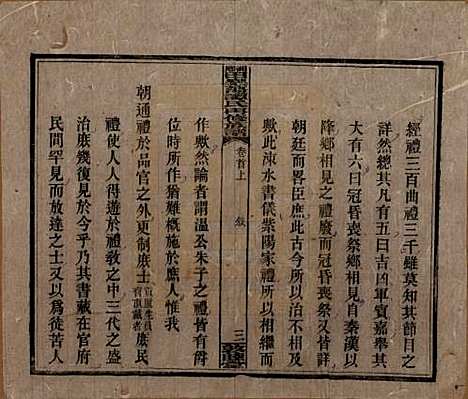 經禮三百曲禮三千雖莫知其節目之
詳然總其凡有五曰吉凶軍賓嘉舉其
大有六曰冠昏喪祭鄉相見自秦漢以
降鄉相見之禮廢而冠昏喪祭又皆詳
朝廷而畧臣庶此古今所以治不相及
歟此涑水書儀紫陽家禮所以相繼而
卷首上
敘
三
作歟然論者謂溫公朱子之禮皆有爵
位時所作猶難概施於庶人惟我
朝通禮於品官之外更制庶士貢監生員有頂戴者庶民
禮使人人得遊於禮教之中三代之盛
治庶幾復見於今乎乃其書藏在官府
民間罕見而放達之士又以爲徒苦人